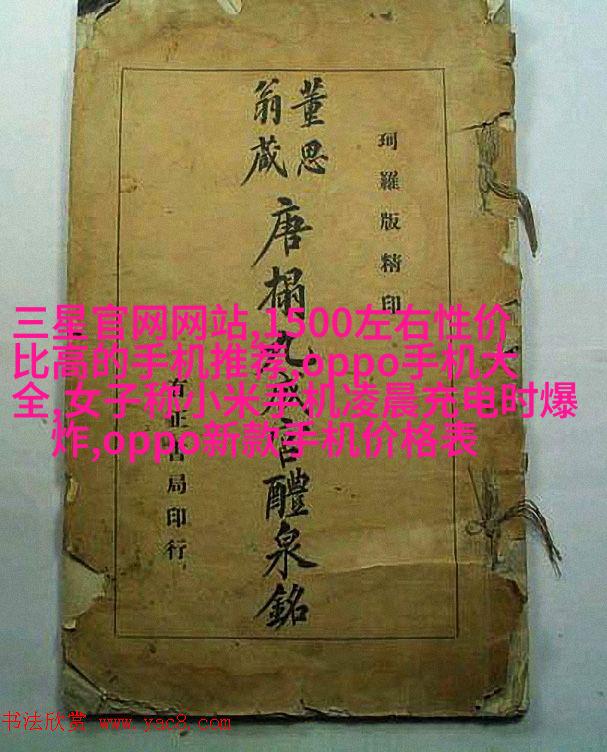 珂羅版精印
董思
翁藏
唐搨九成宮醴泉銘
有正書局印行
三星官网网站,1500左右性价
比高的手机推荐,oppo手机大
全,女子称小米手机凌晨充电时爆
炸,oppo新款手机价格表
书法欣赏 www.yac8.com